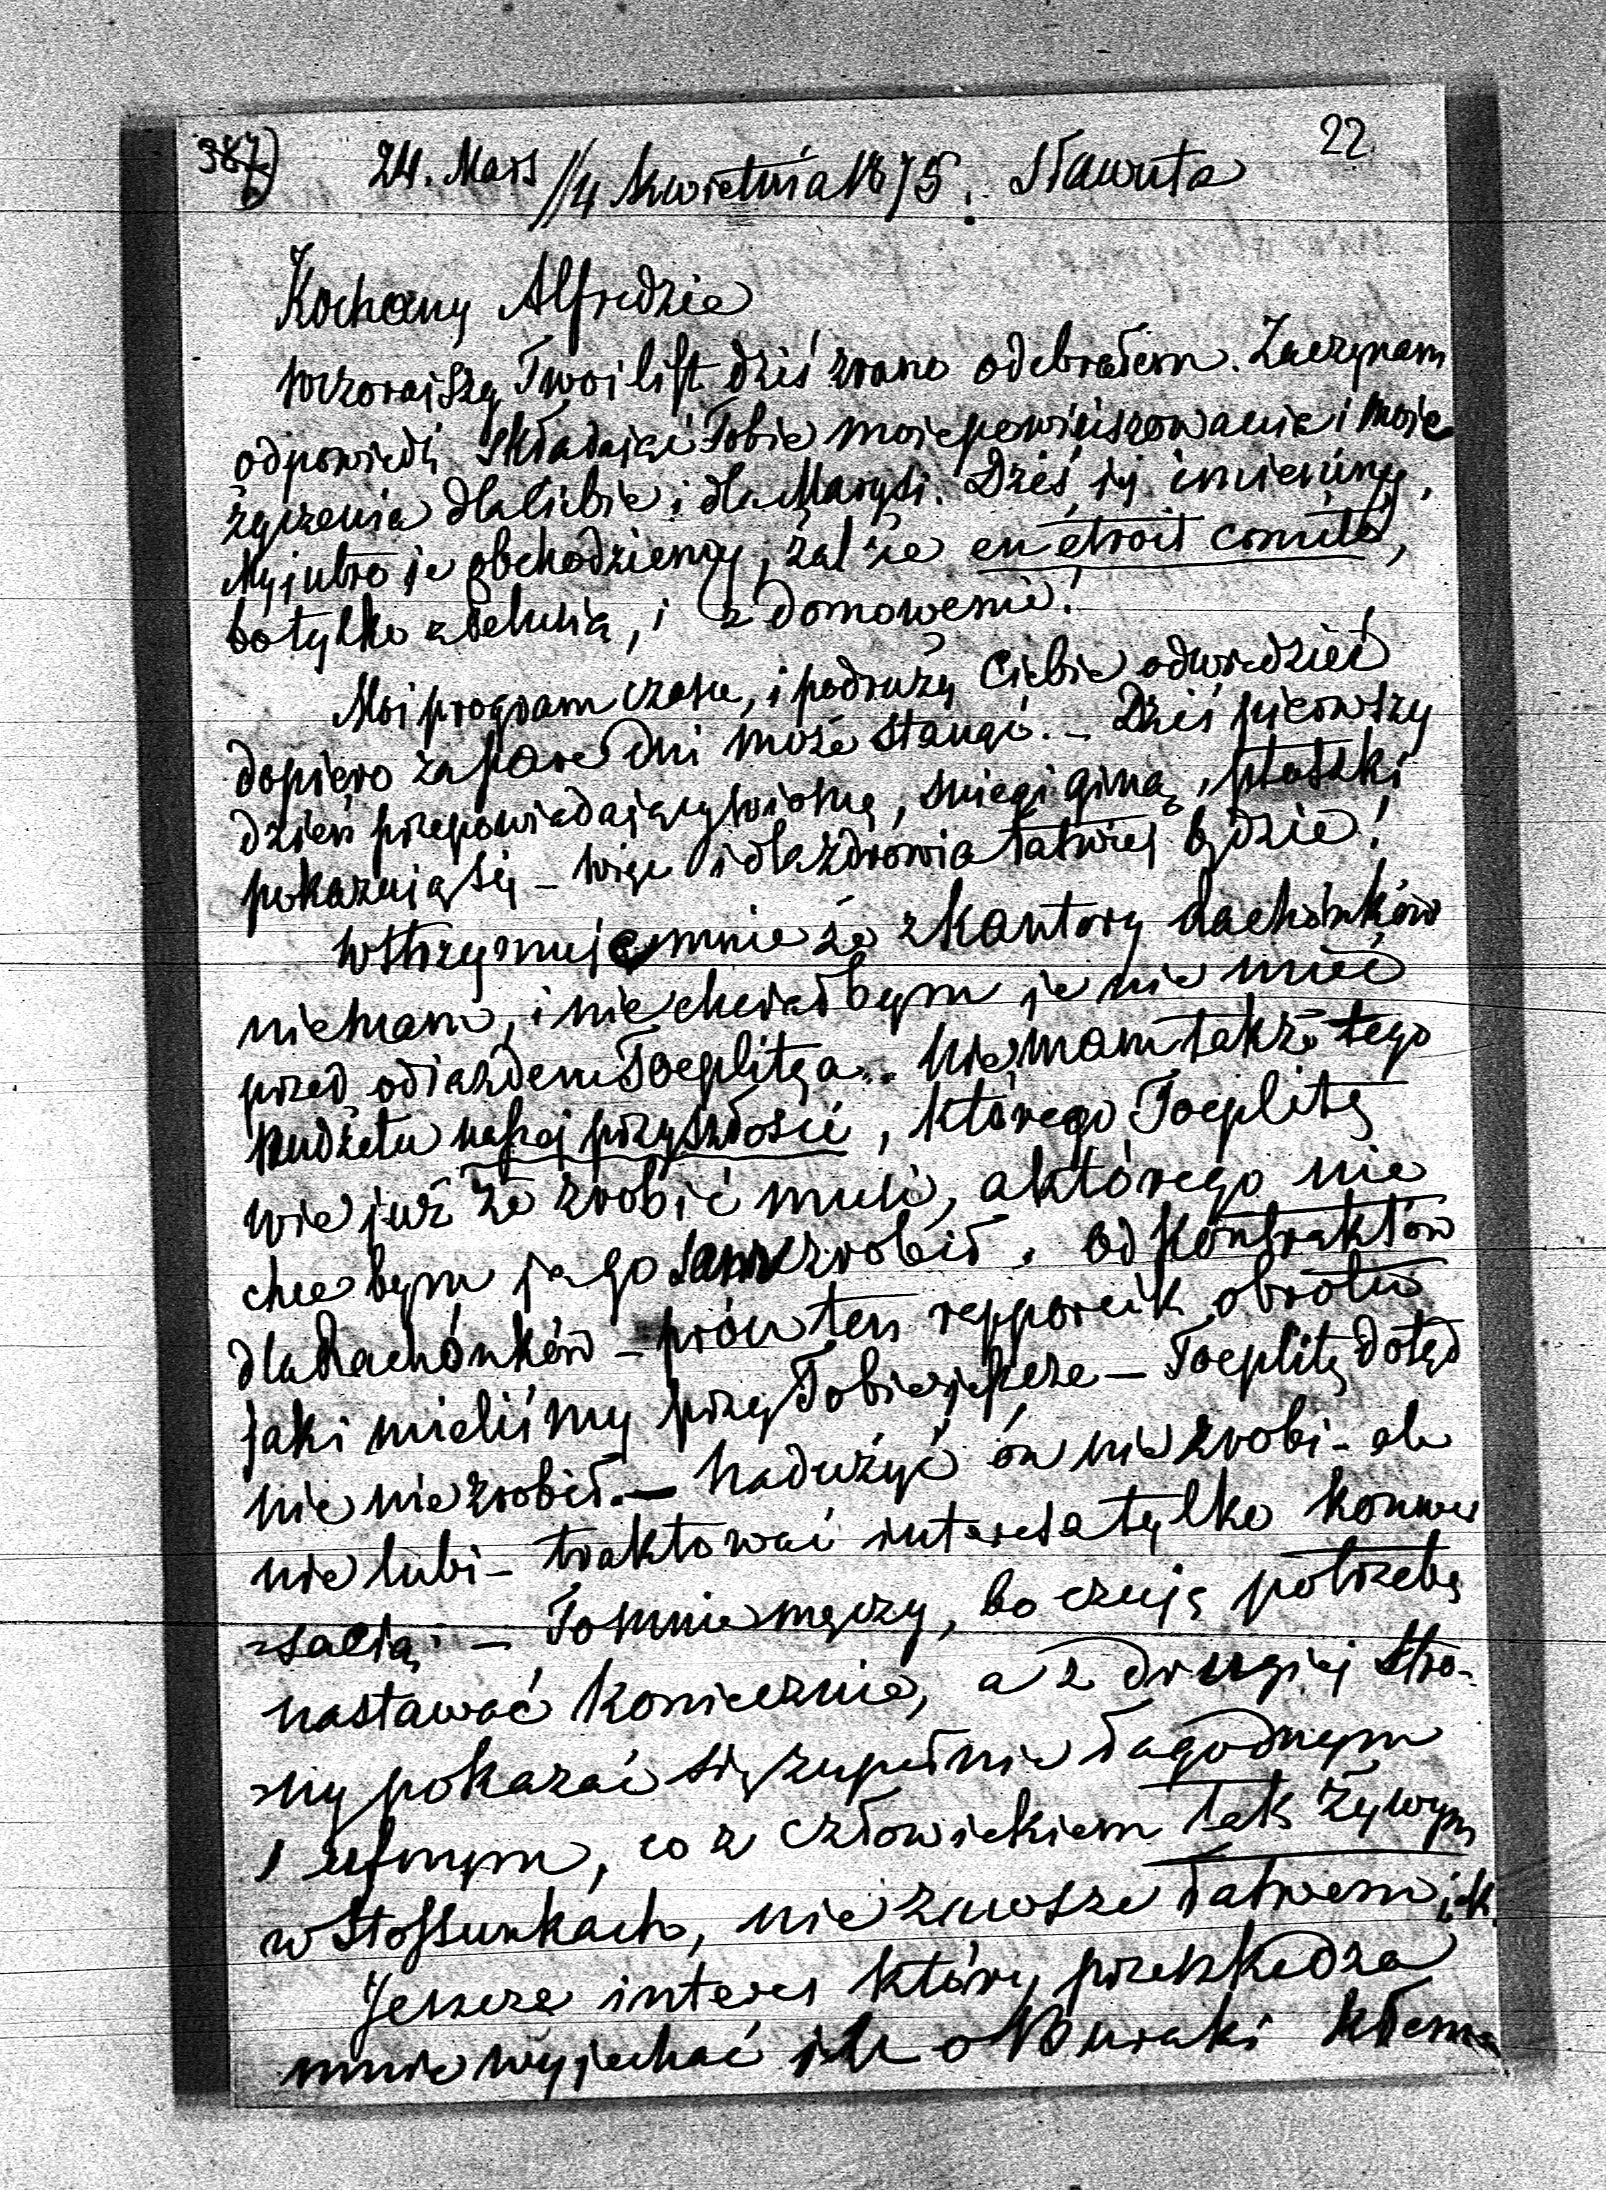 387) 24. Mars // 4 Kwietnia 1875. Sławuta 22
Kochany Alfredzie
wczorajszy Twoi list dziś zrano odebrałem. Zaczynam
odpowiedź składając Tobie moie powinszowania i moie
życzenia dla Ciebie i dla Marysi. Dziś jej imieniny,
My jutro je obchodziemy, żal że en étroit comité,
bo tylko z , i z domowemi!
Moi program czasu, i podruży Ciebie odwiedzieć
dopiero za pare dni może stanąć. – Dziś pierwszy
dzień przepowiedający wiosnę, sniegi giną, ptaszki
pokazują się – więc i dla zdrowia łatwiej będzie!
Wstrzymuje mnie że z Kantory Rachónków
niemam, i niechciałbym je nie mieć
przed odiazdem Toeplitza. Nie mam także tego
Budżetu naszej przyszłości, którego Toeplitz
wie już że zrobić musi, a którego nie
chce bym ja go sam zrobił. Od Kontraktów
dla Rachónków – prócz ten rapporcik obrotu
jaki mieliśmy przy Tobie jeszcze – Toeplitz dotąd
nic nie zrobił. – Nadużyć ón nie zrobi – ale
nie lubi – traktować interesa tylko konwer
sacią. – To mnie męczy, bo czuję potrzebę
nastawać koniecznie, a z drugiej stro-
ny pokazać się zupełnie łagodnym
i ufnym, co z człowiekiem tak żywym
w stossunkach, nie zawsze łatwem jest.
Jeszcze interes który przeszkadza
mnie wyjechać jest o Buraki